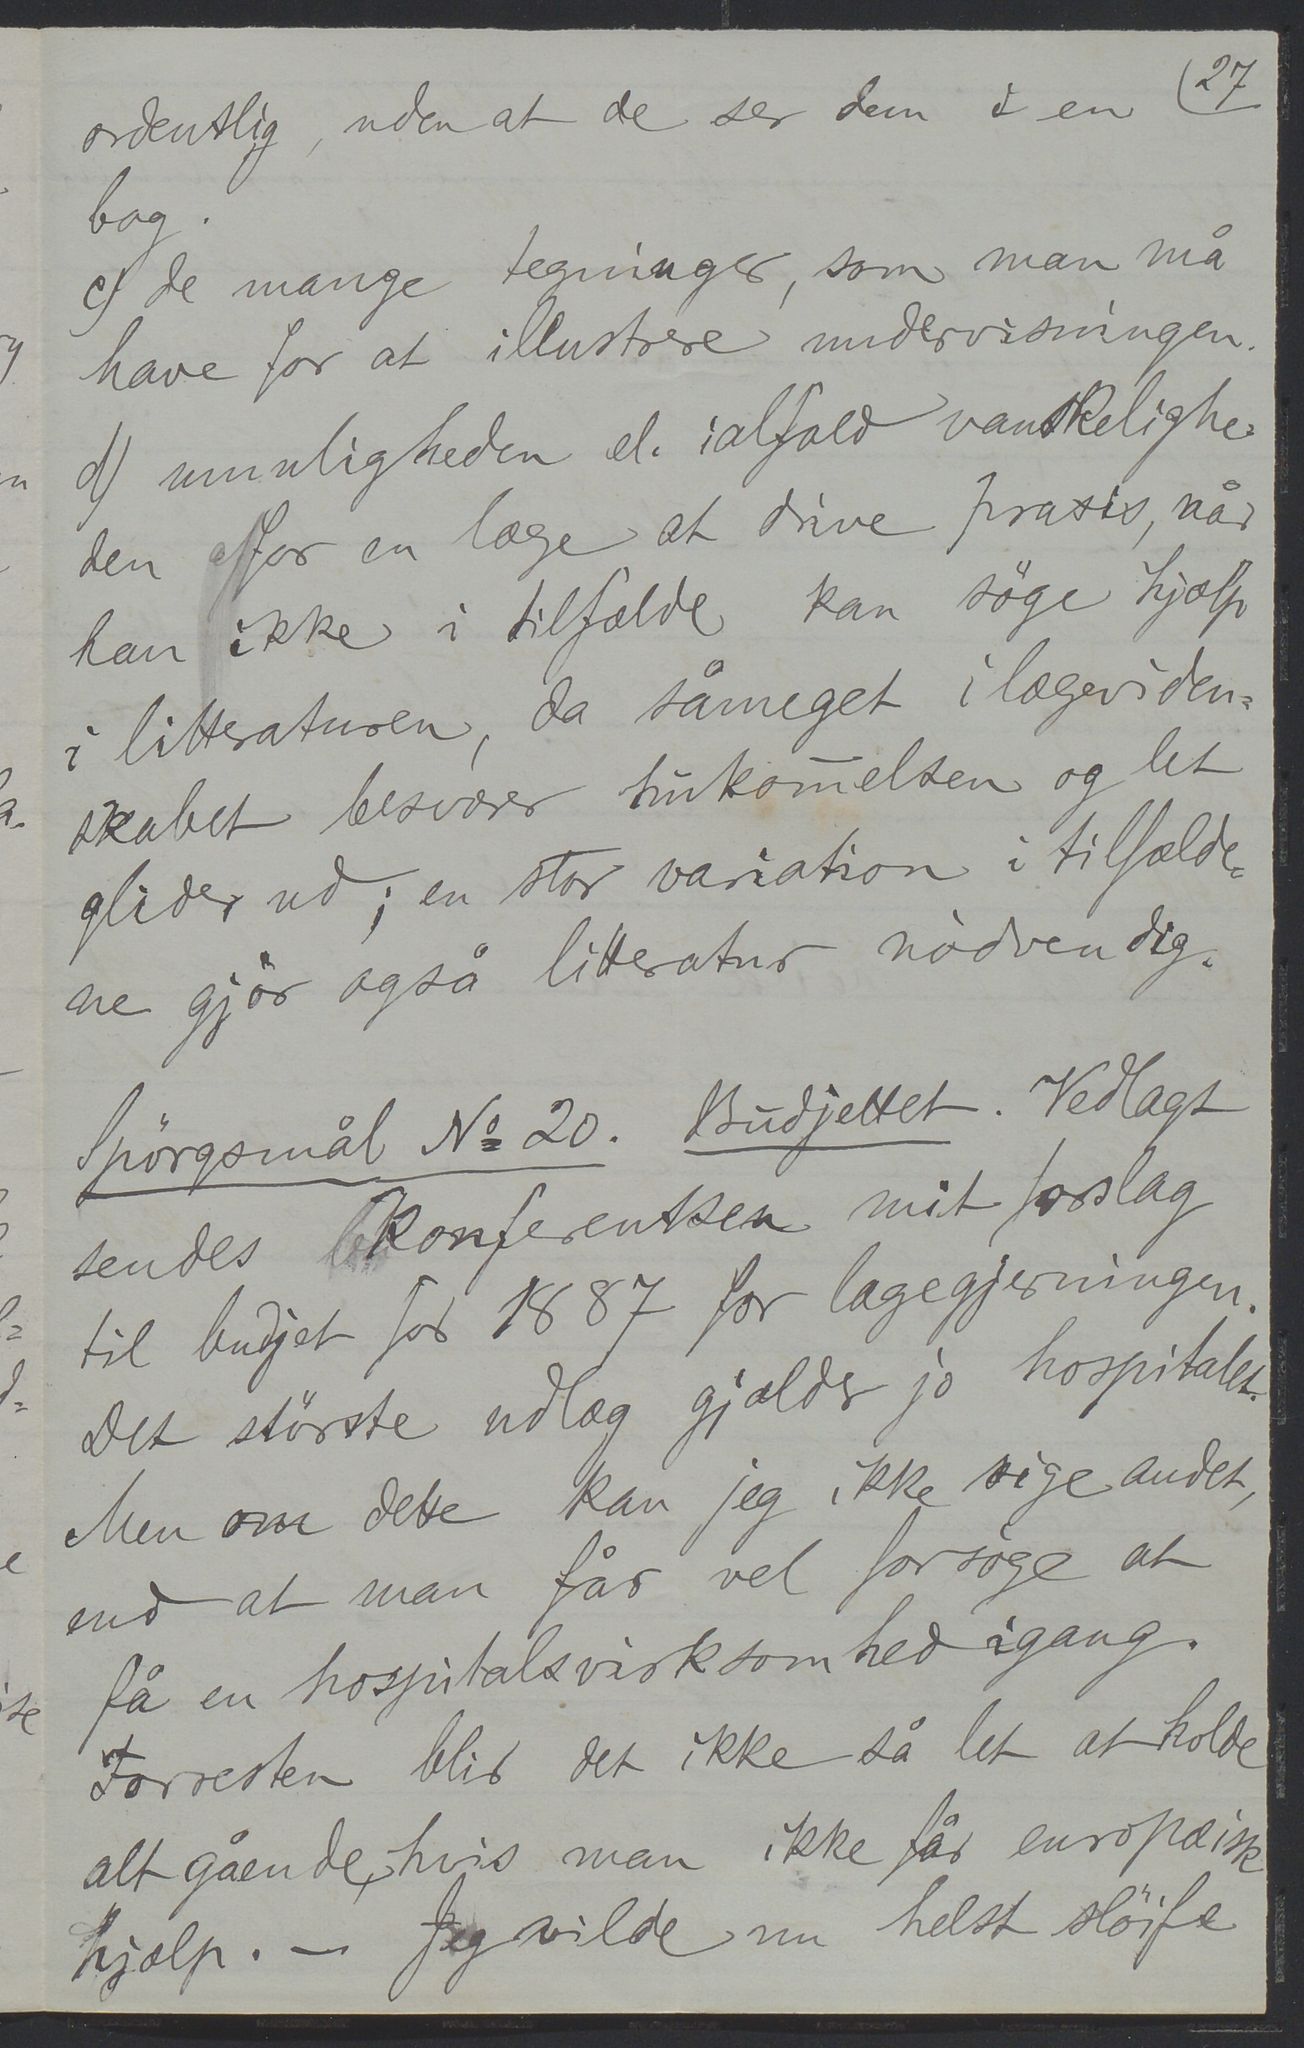 27
ordentlig, uden at de ser dem i en
bog.
c) de mange tegninger, som man må
have for at illustrere undervisningen.
d) umuligheden el. ialfald vanskelighe-
den for en læge at drive praxis, når
han ikke i tilfælde kan söge hjælp
i litteraturen, da såmeget i lægeviden=
skabet besværer hukom̅elsen og let
glider ud; en stor variation i tilfælde=
ne gjör også litteratur nödvendig.
Spörgsmål No 20. Budjettet. Vedlagt
sendes Konferentsen mit forslag
til budjet for 1887 for lægegjerningen.
Det störste udlæg gjælder jo hospitalet.
Men om dette kan jeg ikke sige andet,
end at man får vel forsöge at
få en hospitalsvirksomhed igang.
Forresten blir det ikke så let at holde
alt gående, hvis man ikke får europæisk
hjælp. — Jeg vilde nu helst slöife